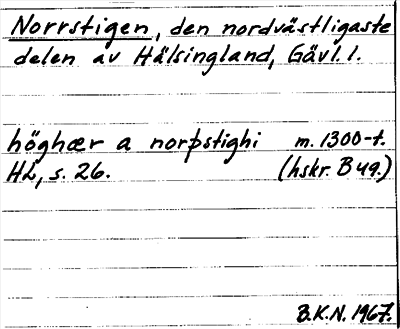 Norrstigen, den nordvästligaste
delen av Hälsingland, Gävl. l.
höghær a norþstighi m. 1300-t.
HL, s. 26. (hskr. B 49.)
B.K.N. 1967.